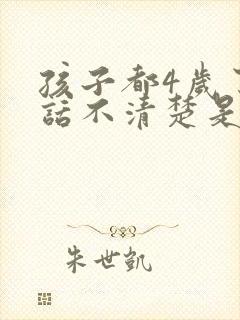 孩子都4歲
話不清楚是
朱世凱